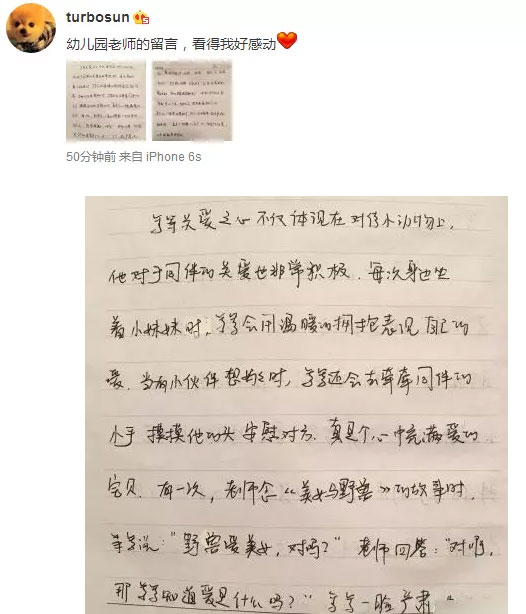 turbosun
幼儿园老师的留言，看得我好感动
50分钟前 来自 iPhone 6s
等等关爱之心不仅体现在对待小动物上，
他对于同伴的关爱也非常积极．每次身边坐
着小妹妹时，等等会用温暖的拥抱表现自己的
爱．当有小伙伴想妈妈时，等等还会去牵牵同伴的
小手 摸摸他的头 安慰对方．真是个心中充满爱的
宝贝．有一次，老师念《美女与野兽》的故事时．
等等说：“野兽爱美女，对吗？” 老师回答：“对啊，
那等等知道爱是什么吗？” 等等一脸严肃“